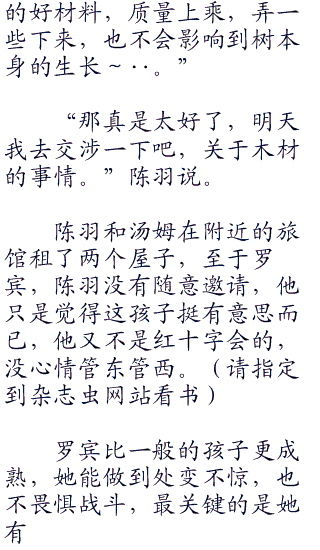 的好材料，质量上乘，弄一
些下来，也不会影响到树本
身的生长～··。”
“那真是太好了，明天
我去交涉一下吧，关于木材
的事情。”陈羽说。
陈羽和汤姆在附近的旅
馆租了两个屋子，至于罗
宾，陈羽没有随意邀请，他
只是觉得这孩子挺有意思而
已，他又不是红十字会的，
没心情管东管西。（请指定
到杂志虫网站看书）
罗宾比一般的孩子更成
熟，她能做到处变不惊，也
不畏惧战斗，最关键的是她
有